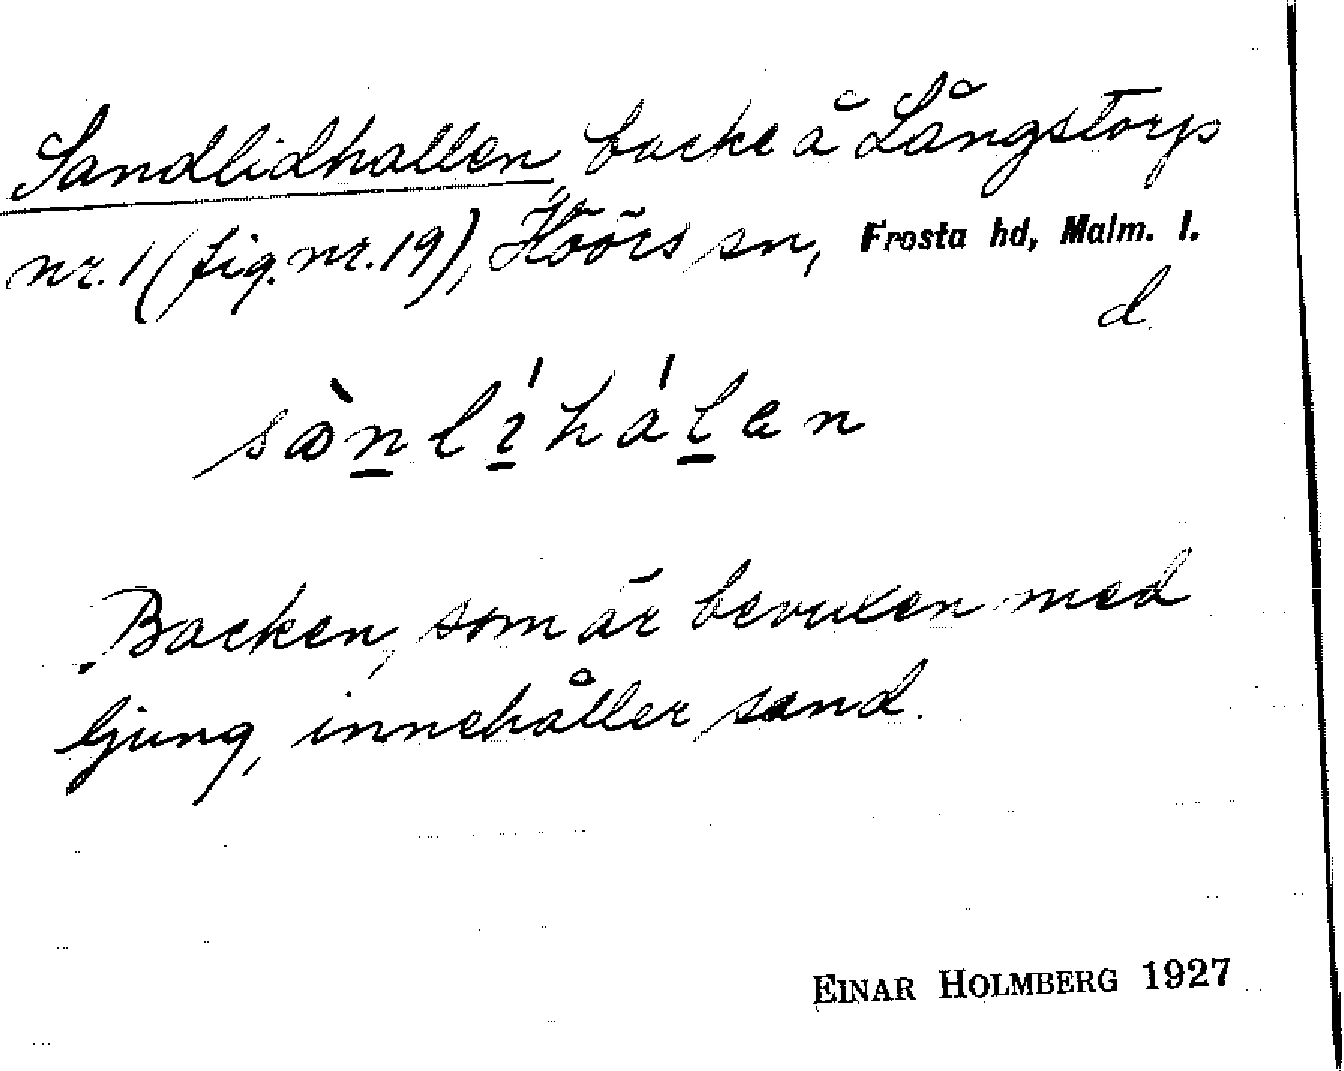 Sandlidhallen, backe å Långstorps
nr. 1 (fig. nr. 19), Höörs sn, Frosta hd, Malm. l.
d.
sànlíhálen
Backen, som är bevuxen med
ljung, innehåller sand.
EINAR HOLMBERG 1927